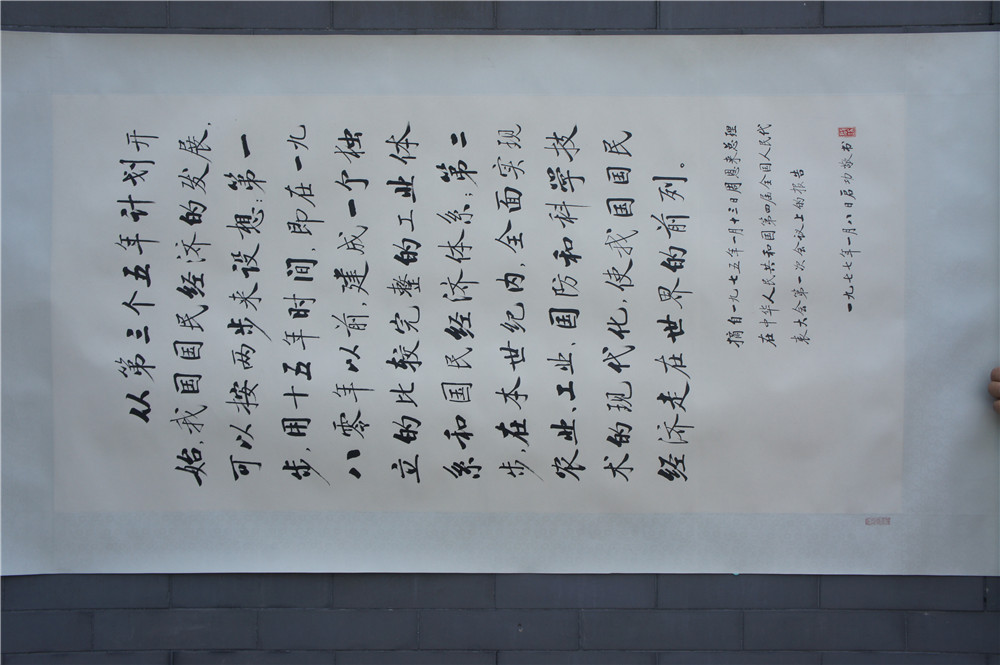 从第三个五年计划开
始，我国国民经济的发展，
可以按两步来设想：第一
步，用十五年时间，即在一九
八零年以前，建成一个独
立的比较完整的工业体
系和国民经济体系；第二
步，在本世纪内，全面实现
农业、工业、国防和科学技
术的现代化，使我国国民
经济走在世界的前列。
摘自一九七五年一月十三日周恩来总理
在中华人民共和国第四届全国人民代
表大会第一次会议上的报告
一九七七年一月八日启功敬书